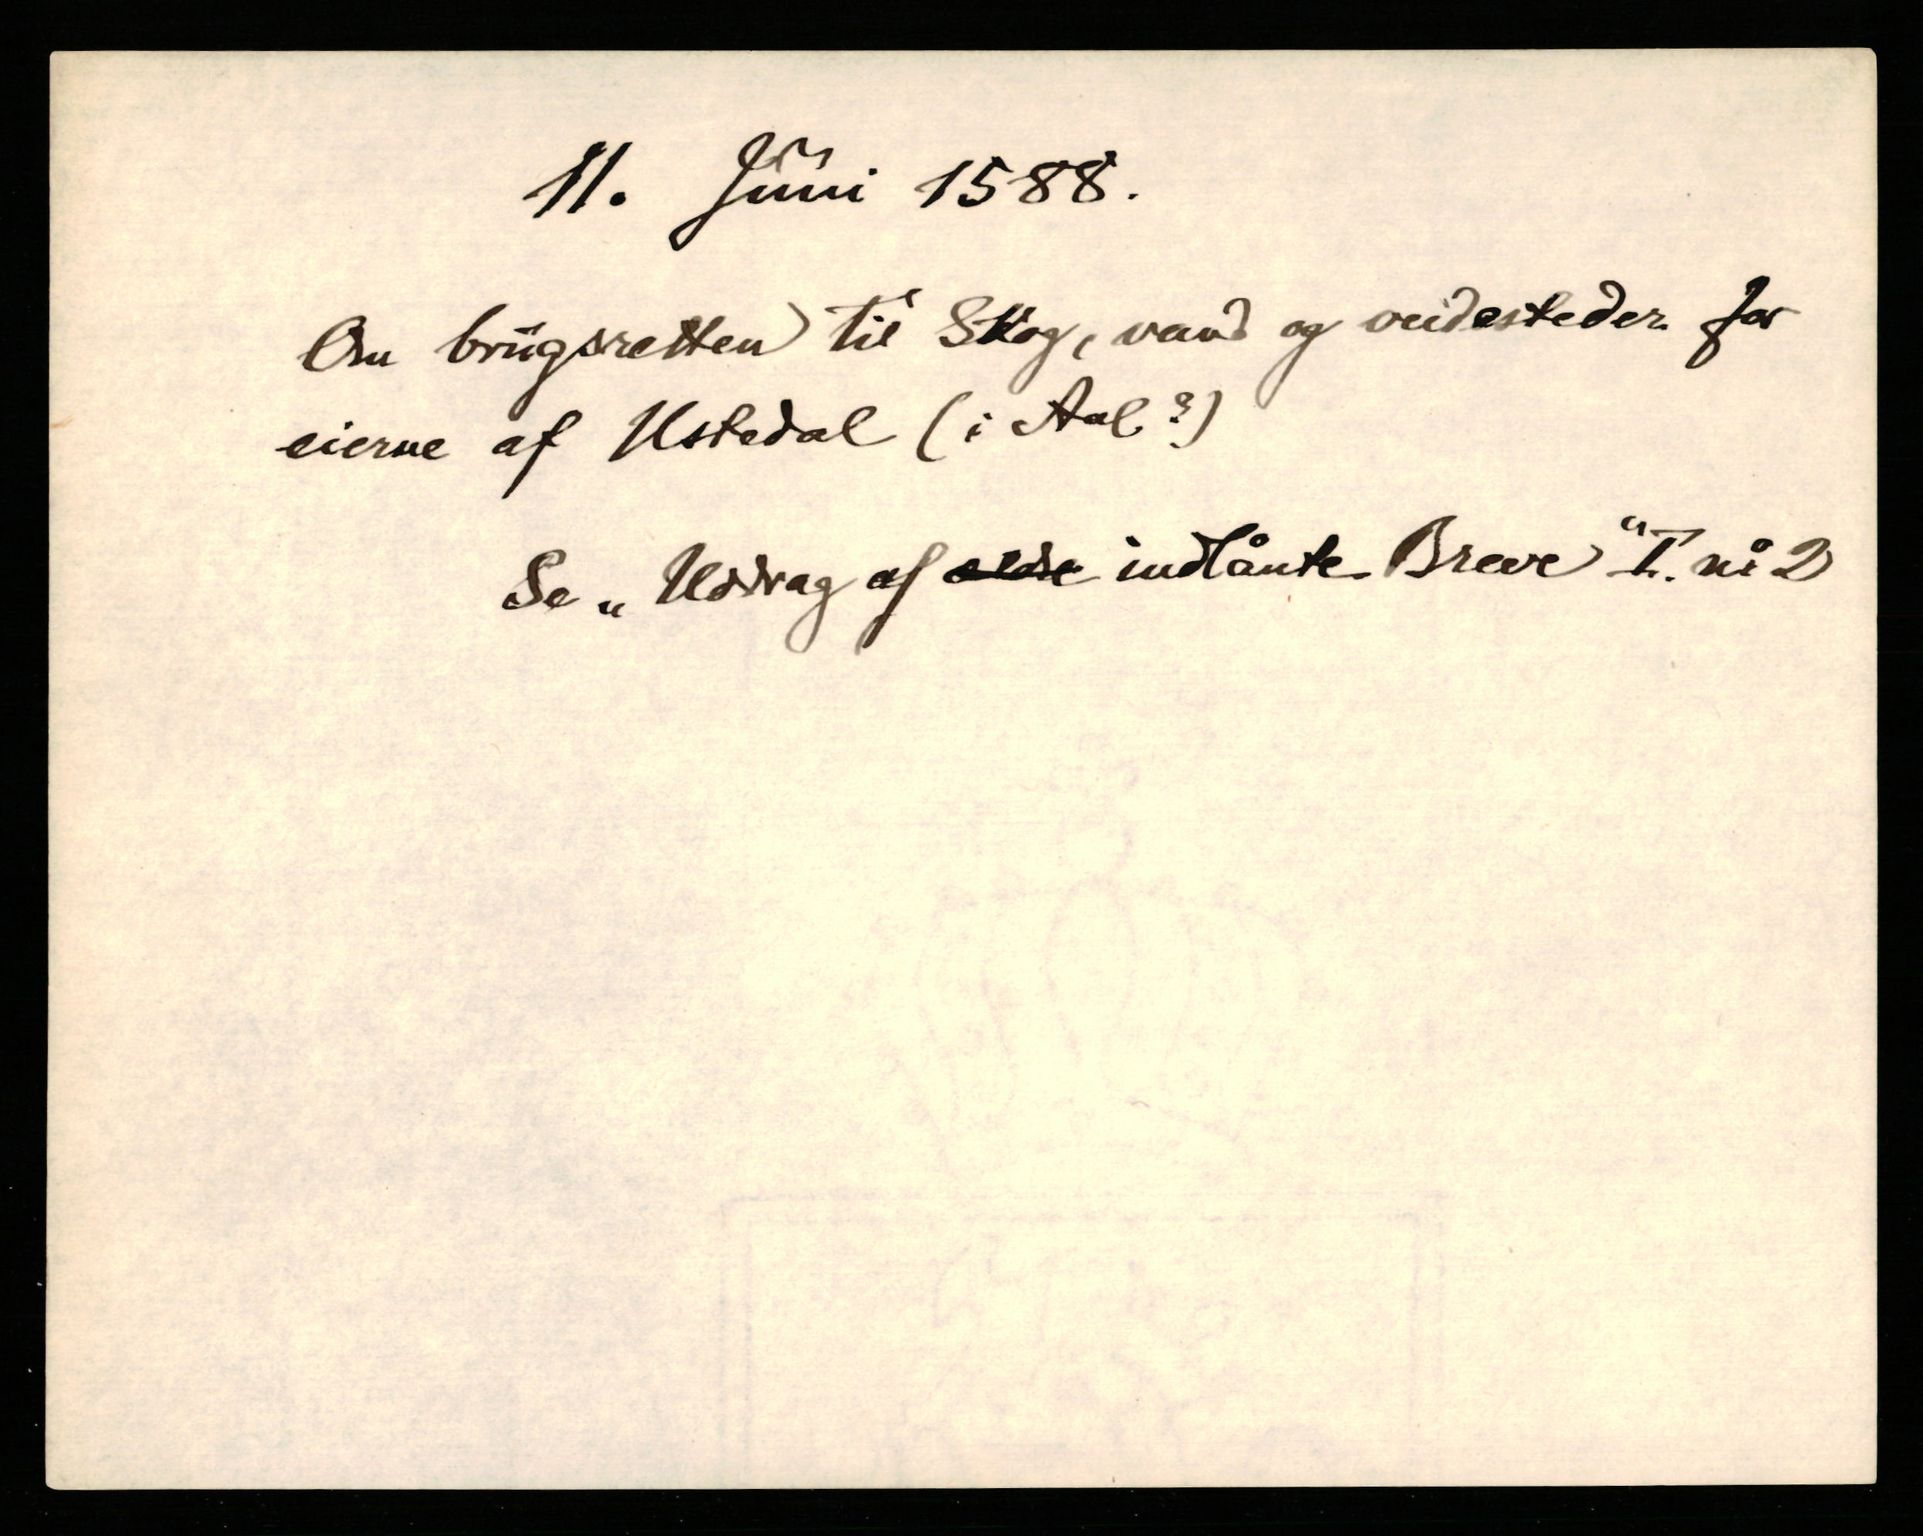 11. Juni 1588.
Om brugsretten til Skog, vand og veidesteder for
eierne af Ustedal (i Aal?)
Se „Uddrag af indlånte Breve“ I. no 2